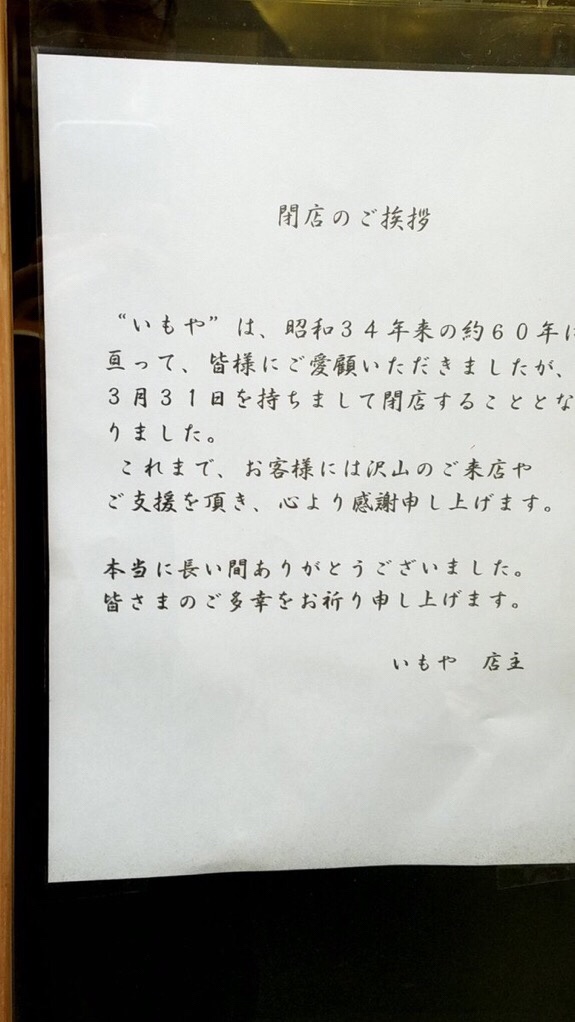 閉店のご挨拶
“いもや”は、昭和３４年来の約６０年に
亘って、皆様にご愛顧いただきましたが、
３月３１日を持ちまして閉店することとな
りました。
これまで、お客様には沢山のご来店や
ご支援を頂き、心より感謝申し上げます。
本当に長い間ありがとうございました。
皆さまのご多幸をお祈り申し上げます。
いもや　店主